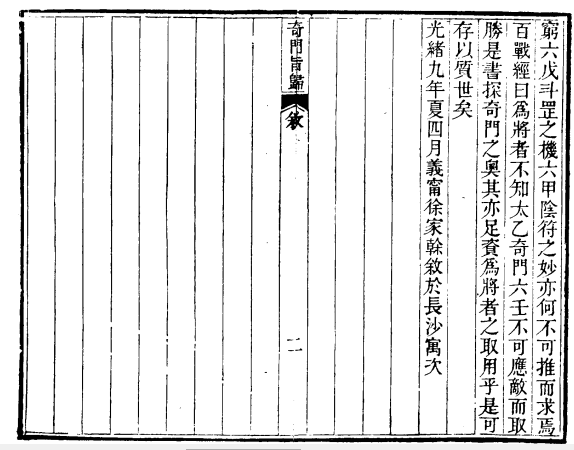 窮六戊斗罡之機六甲陰符之妙亦何不可推而求焉
百戰經曰爲將者不知太乙奇門六壬不可應敵而取
勝是書探奇門之奧其亦足資爲將者之取用乎是可
存以質世矣
光緒九年夏四月義甯徐家幹敘於長沙寓次
奇門旨歸
敘
二